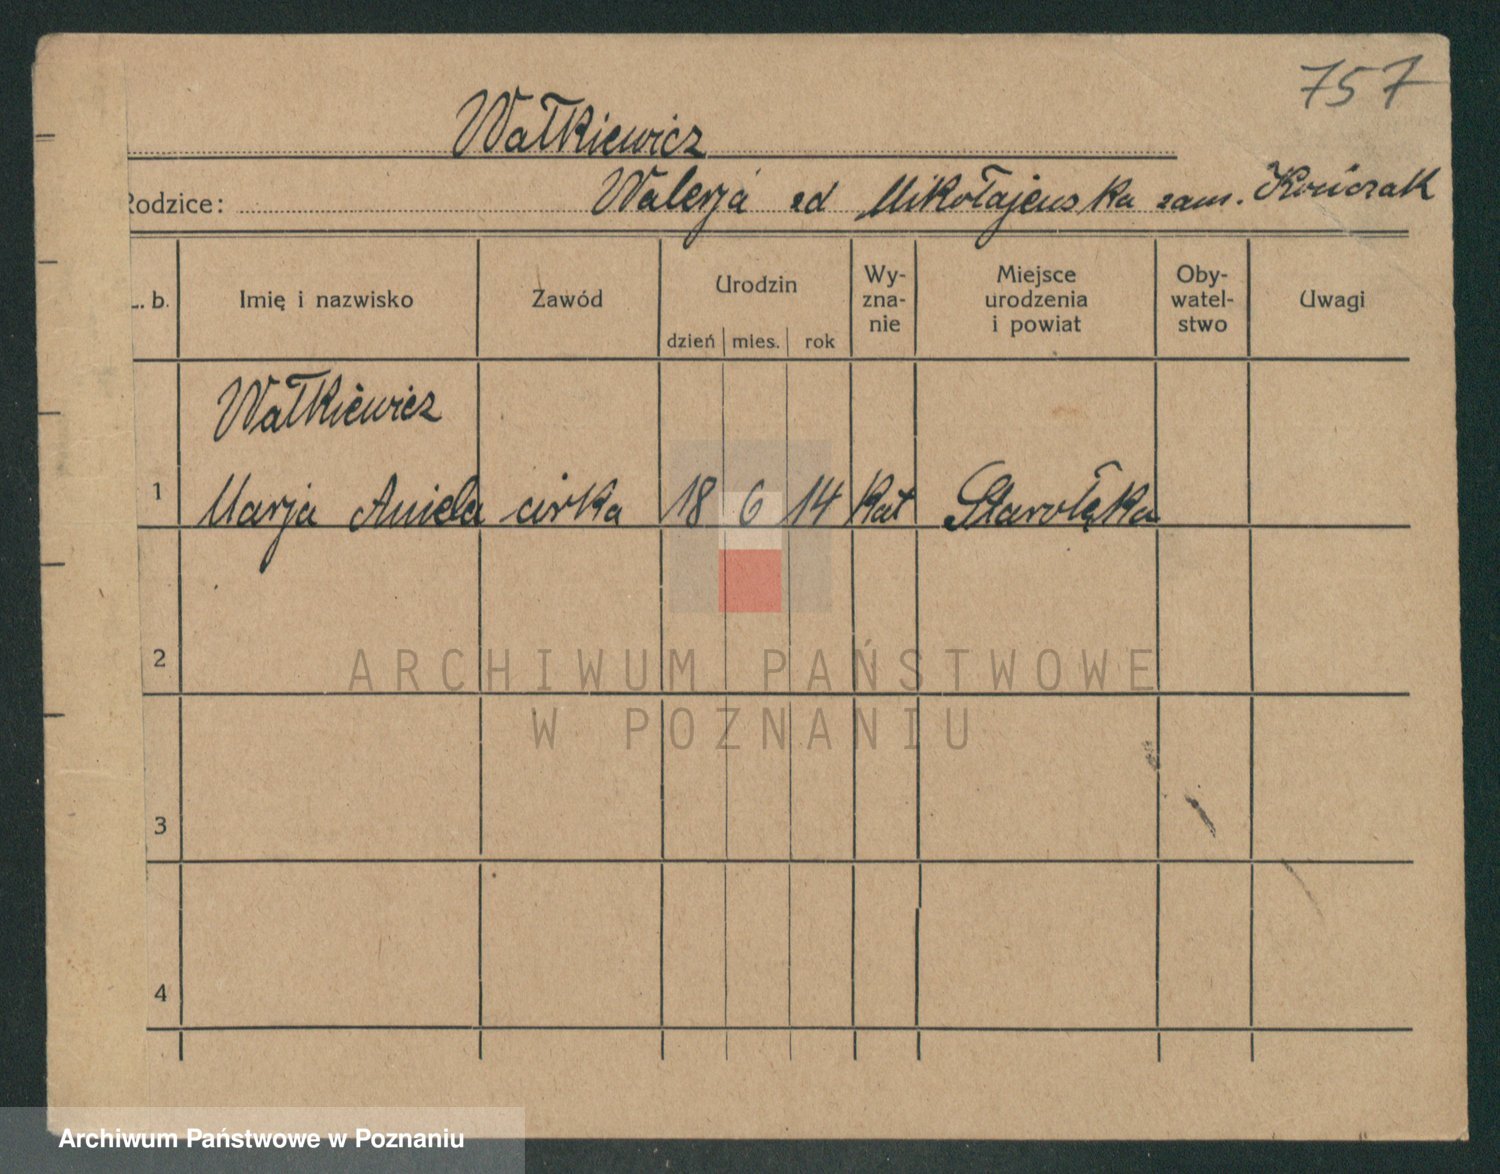 757
Wałkiewicz
Rodzice: Walerja zd Mikołajewska zam. Kończak
L. b. Imię i nazwisko Zawód Urodzin dzień mies. rok Wy-zna-nie Miejsce urodzenia i powiat Oby-watel-stwo Uwagi
Wałkiewicz
1 Marja Aniela córka 18 6 14 kat Starołęka
2
ARCHIWUM PAŃSTWOWE
W POZNANIU
3
4
Archiwum Państwowe w Poznaniu